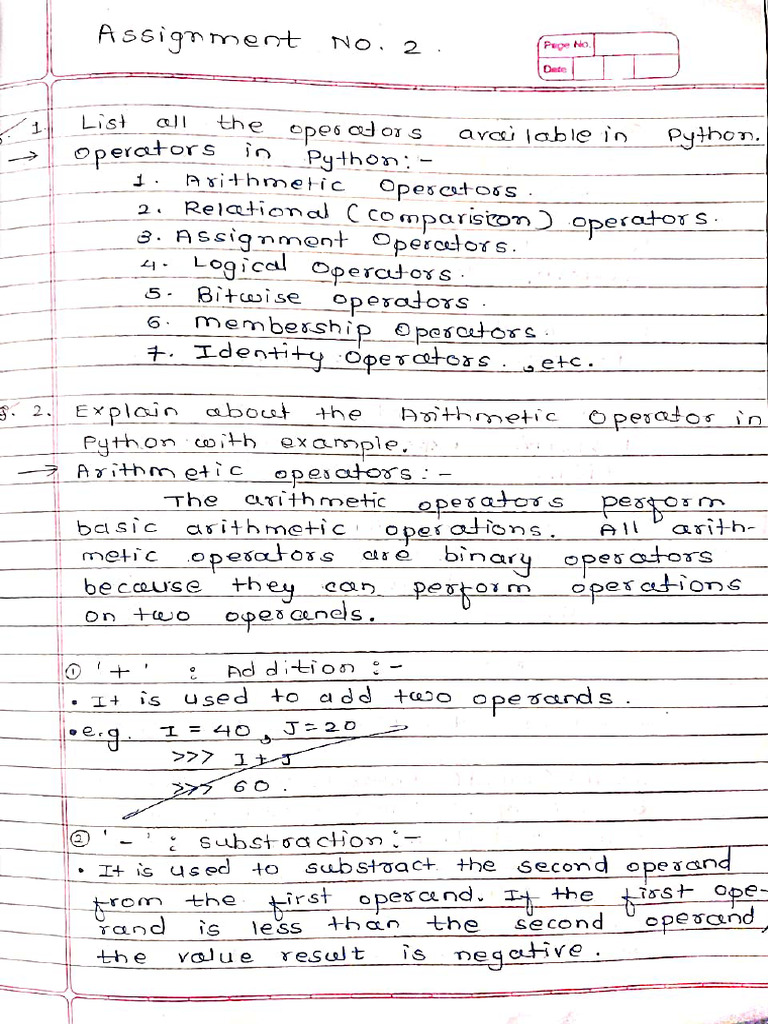 Assignment No. 2.
Page No.
Date
1. List all the operators available in Python.
→ Operators in Python:-
1. Arithmetic Operators.
2. Relational (comparision) operators.
3. Assignment Operators.
4. Logical Operators.
5. Bitwise operators.
6. Membership Operators.
7. Identity Operators., etc.
2. Explain about the Arithmetic Operator in
Python with example.
→ Arithmetic operators:-
The arithmetic operators perform
basic arithmetic operations. All arith-
metic operators are binary operators
because they can perform operations
on two operands.
① '+' : Addition :-
• It is used to add two operands.
• e.g. I = 40, J=20
>>> I + J
>>> 60.
② '-' : substraction:-
• It is used to substract the second operand
from the first operand. If the first ope-
rand is less than the second operand,
the value result is negative.